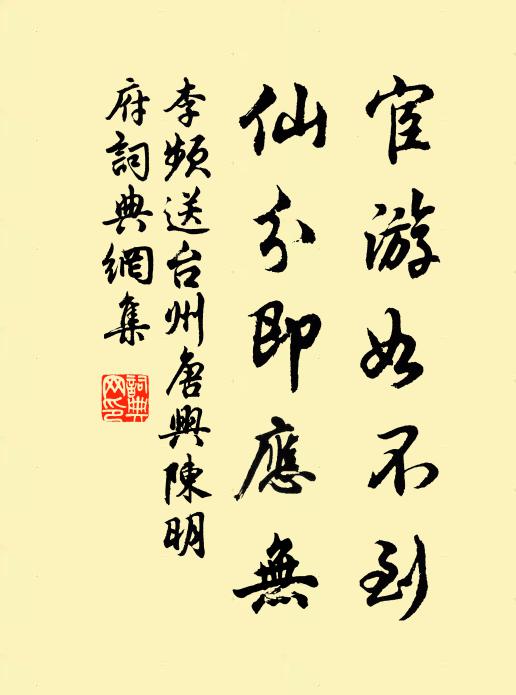 宦游如不到
仙分即應無
李頻送台州唐興陳明
府詞典網集
詞典
网印